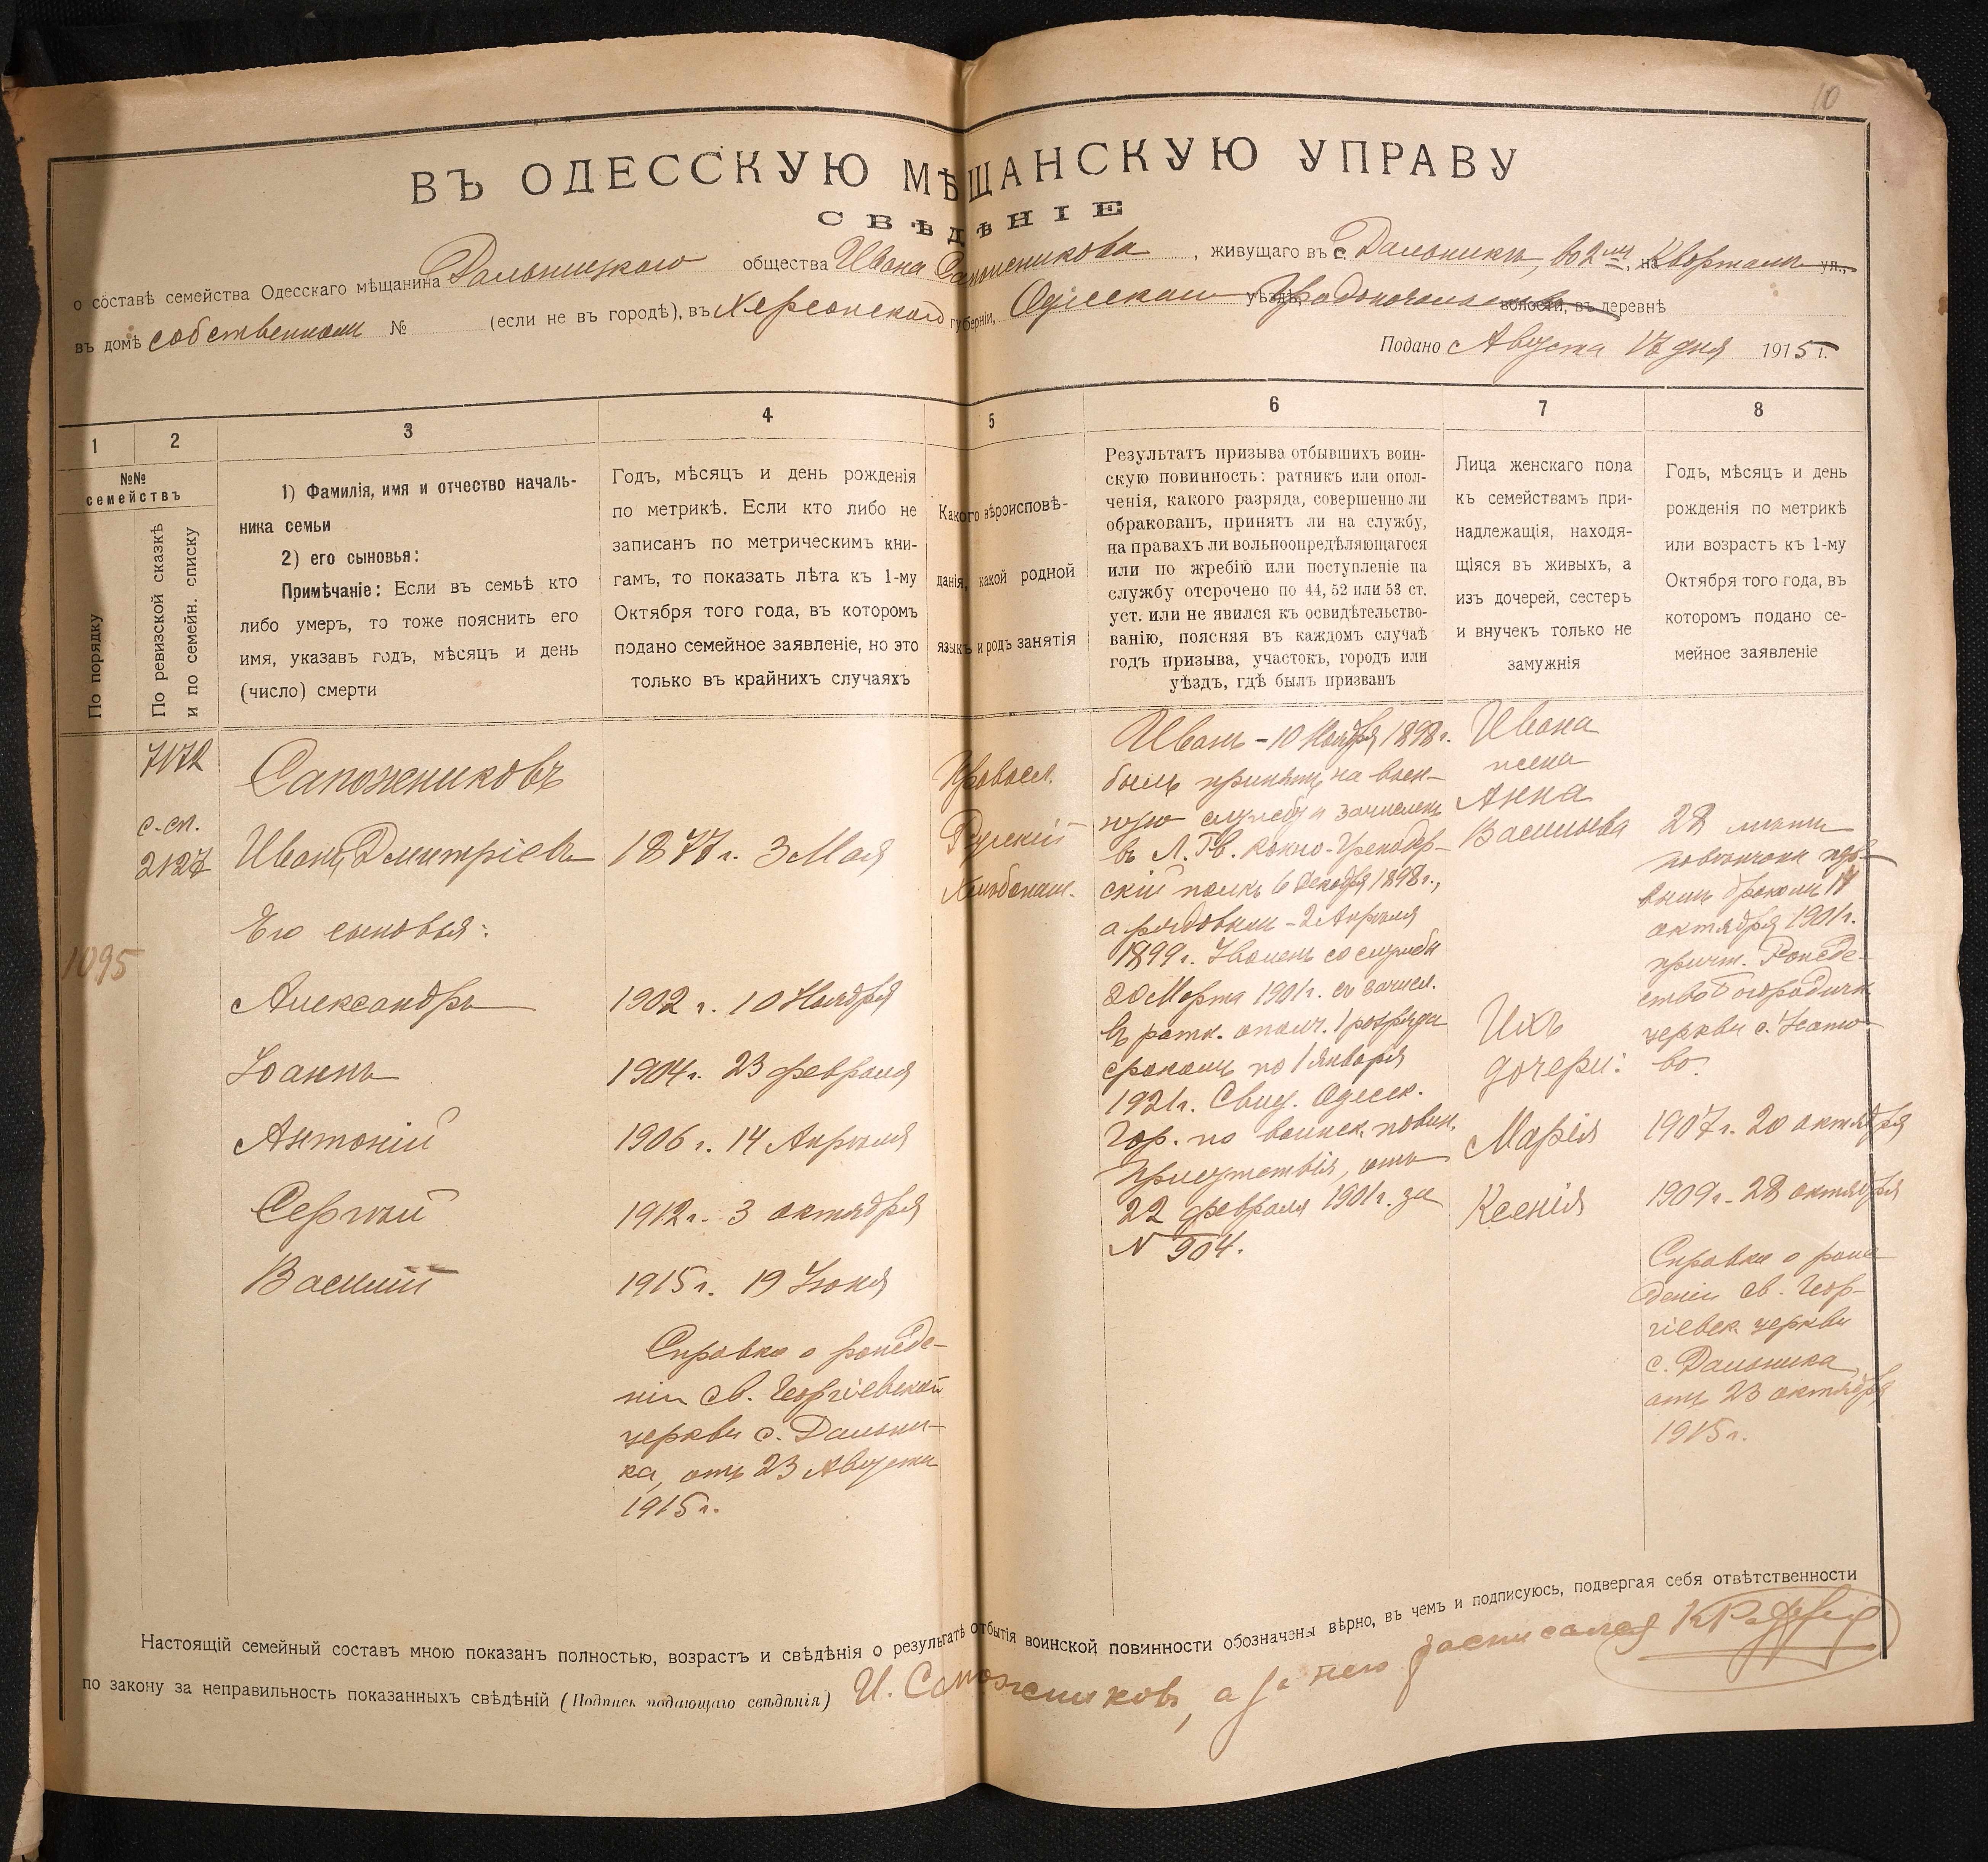 10
ВЪ ОДЕССКУЮ МѢЩАНСКУЮ УПРАВУ
СВѢДѢНІЕ
о составѣ семейства Одесскаго мѣщанина Дальницкаго общества Ивана Сапожникова, живущаго въ с. Дальникѣ, во 2мъ, на Кварталѣ ул.,
въ домѣ собственномъ № (если не въ городѣ), въ Херсонской губерніи, Одесскаго уѣзда, Градоначальства волости, въ деревнѣ
Подано Августа 17 дня 1915 г.
1 2 3 4 5 6 7 8
№№ семействъ
По порядку
По ревизской сказкѣ
и по семейн. списку
1) Фамилія, имя и отчество началь-
ника семьи
2) его сыновья:
Примѣчаніе: Если въ семьѣ кто
либо умеръ, то тоже пояснить его
имя, указавъ годъ, мѣсяцъ и день
(число) смерти
Годъ, мѣсяцъ и день рожденія
по метрикѣ. Если кто либо не
записанъ по метрическимъ кни-
гамъ, то показать лѣта къ 1-му
Октября того года, въ которомъ
подано семейное заявленіе, но это
только въ крайнихъ случаяхъ
Какого вѣроисповѣ-
данія, какой родной
языкъ и родъ занятія
Результатъ призыва отбывшихъ воин-
скую повинность: ратникъ или опол-
ченія, какого разряда, совершенно ли
обракованъ, принятъ ли на службу,
на правахъ ли вольноопредѣляющагося
или по жребію или поступленіе на
службу отсрочено по 44, 52 или 53 ст.
уст. или не явился къ освидѣтельство-
ванію, поясняя въ каждомъ случаѣ
годъ призыва, участокъ, городъ или
уѣздъ, гдѣ былъ призванъ
Лица женскаго пола
къ семействамъ при-
надлежащія, находя-
щіяся въ живыхъ, а
изъ дочерей, сестеръ
и внучекъ только не
замужнія
Годъ, мѣсяцъ и день
рожденія по метрикѣ
или возрастъ къ 1-му
Октября того года, въ
котором подано се-
мейное заявленіе
7172
с. сп.
2127
1095
Сапожниковъ
Иванъ Дмитріевъ
Его сыновья:
Александръ
Іоаннъ
Антоній
Сергѣй
Василій
1877 г. 3 Мая
1902 г. 10 Ноября
1904 г. 23 февраля
1906 г. 14 Апрѣля
1912 г. 3 октября
1915 г. 19 Іюня
Справка о рожде-
ніи св. Георгіевской
церкви с. Дальни-
ка, отъ 23 Августа
1915 г.
Правосл.
Русскій
Хлѣбопаш.
Иванъ - 10 Ноября 1898 г.
былъ принятъ на воен-
ную службу и зачисленъ
въ Л. Гв. Конно-Гренадер-
скій полкъ 6 Декабря 1898 г.,
а рядовымъ - 2 Апрѣля
1899 г. Уволенъ со службы
20 Марта 1901 г. съ зачисл.
въ ратн. ополч. 1 разряда
срокомъ по 1 января
1921 г. Свид. Одесск.
Гор. по воинск. повин.
Присутствія, отъ
22 февраля 1901 г. за
N 904.
Ивана
жена
Анна
Васильева
Ихъ
дочери:
Марія
Ксенія
28 лѣтъ
повѣнчана пер-
вымъ бракомъ 14
октября 1901 г.
причт. Рожде-
ство Богородичн.
церкви с. Усато-
во.
1907 г. 20 октября
1909 г. 28 октября
Справка о рож-
деніи св. Геор-
гіевск. церкви
с. Дальника,
отъ 23 октября
1915 г.
Настоящій семейный составъ мною показанъ полностью, возрастъ и свѣдѣнія о результатѣ отбытія воинской повинности обозначены вѣрно, въ чемъ и подписуюсь, подвергая себя отвѣтственности
по закону за неправильность показанныхъ свѣдѣній (Подпись подающаго свѣдѣнія) И. Сапожниковъ, а за него расписался